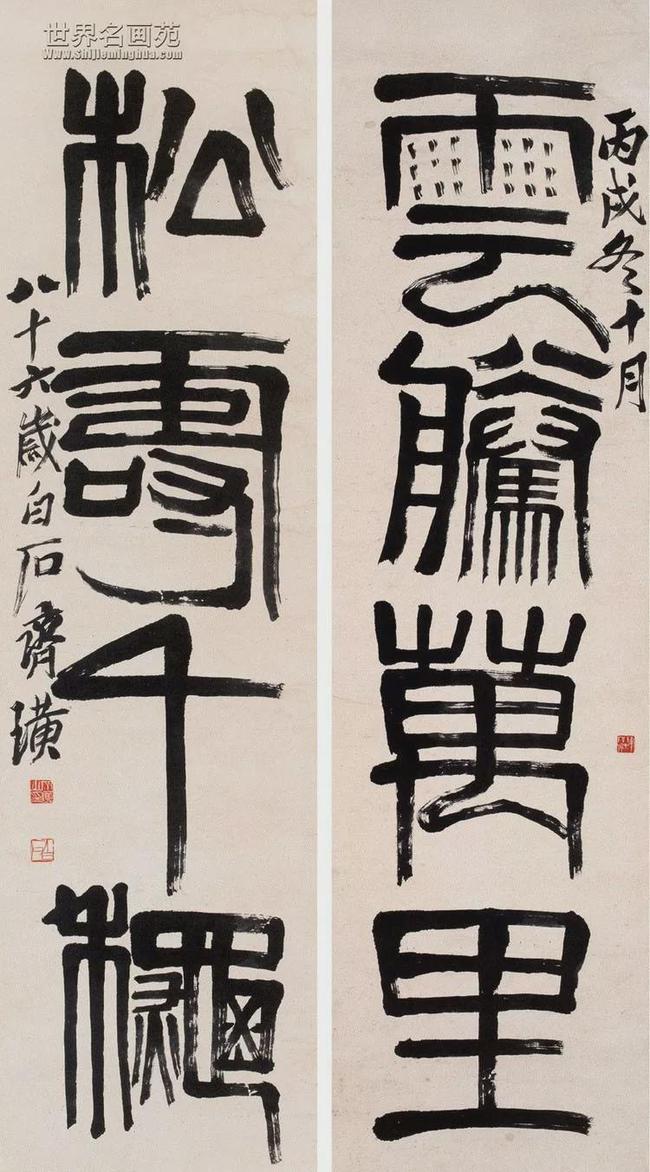 世界名画苑
www.Shijieminghua.com
丙戌冬十月
雲騰萬里
松壽千龝
八十六歲白石齊璜